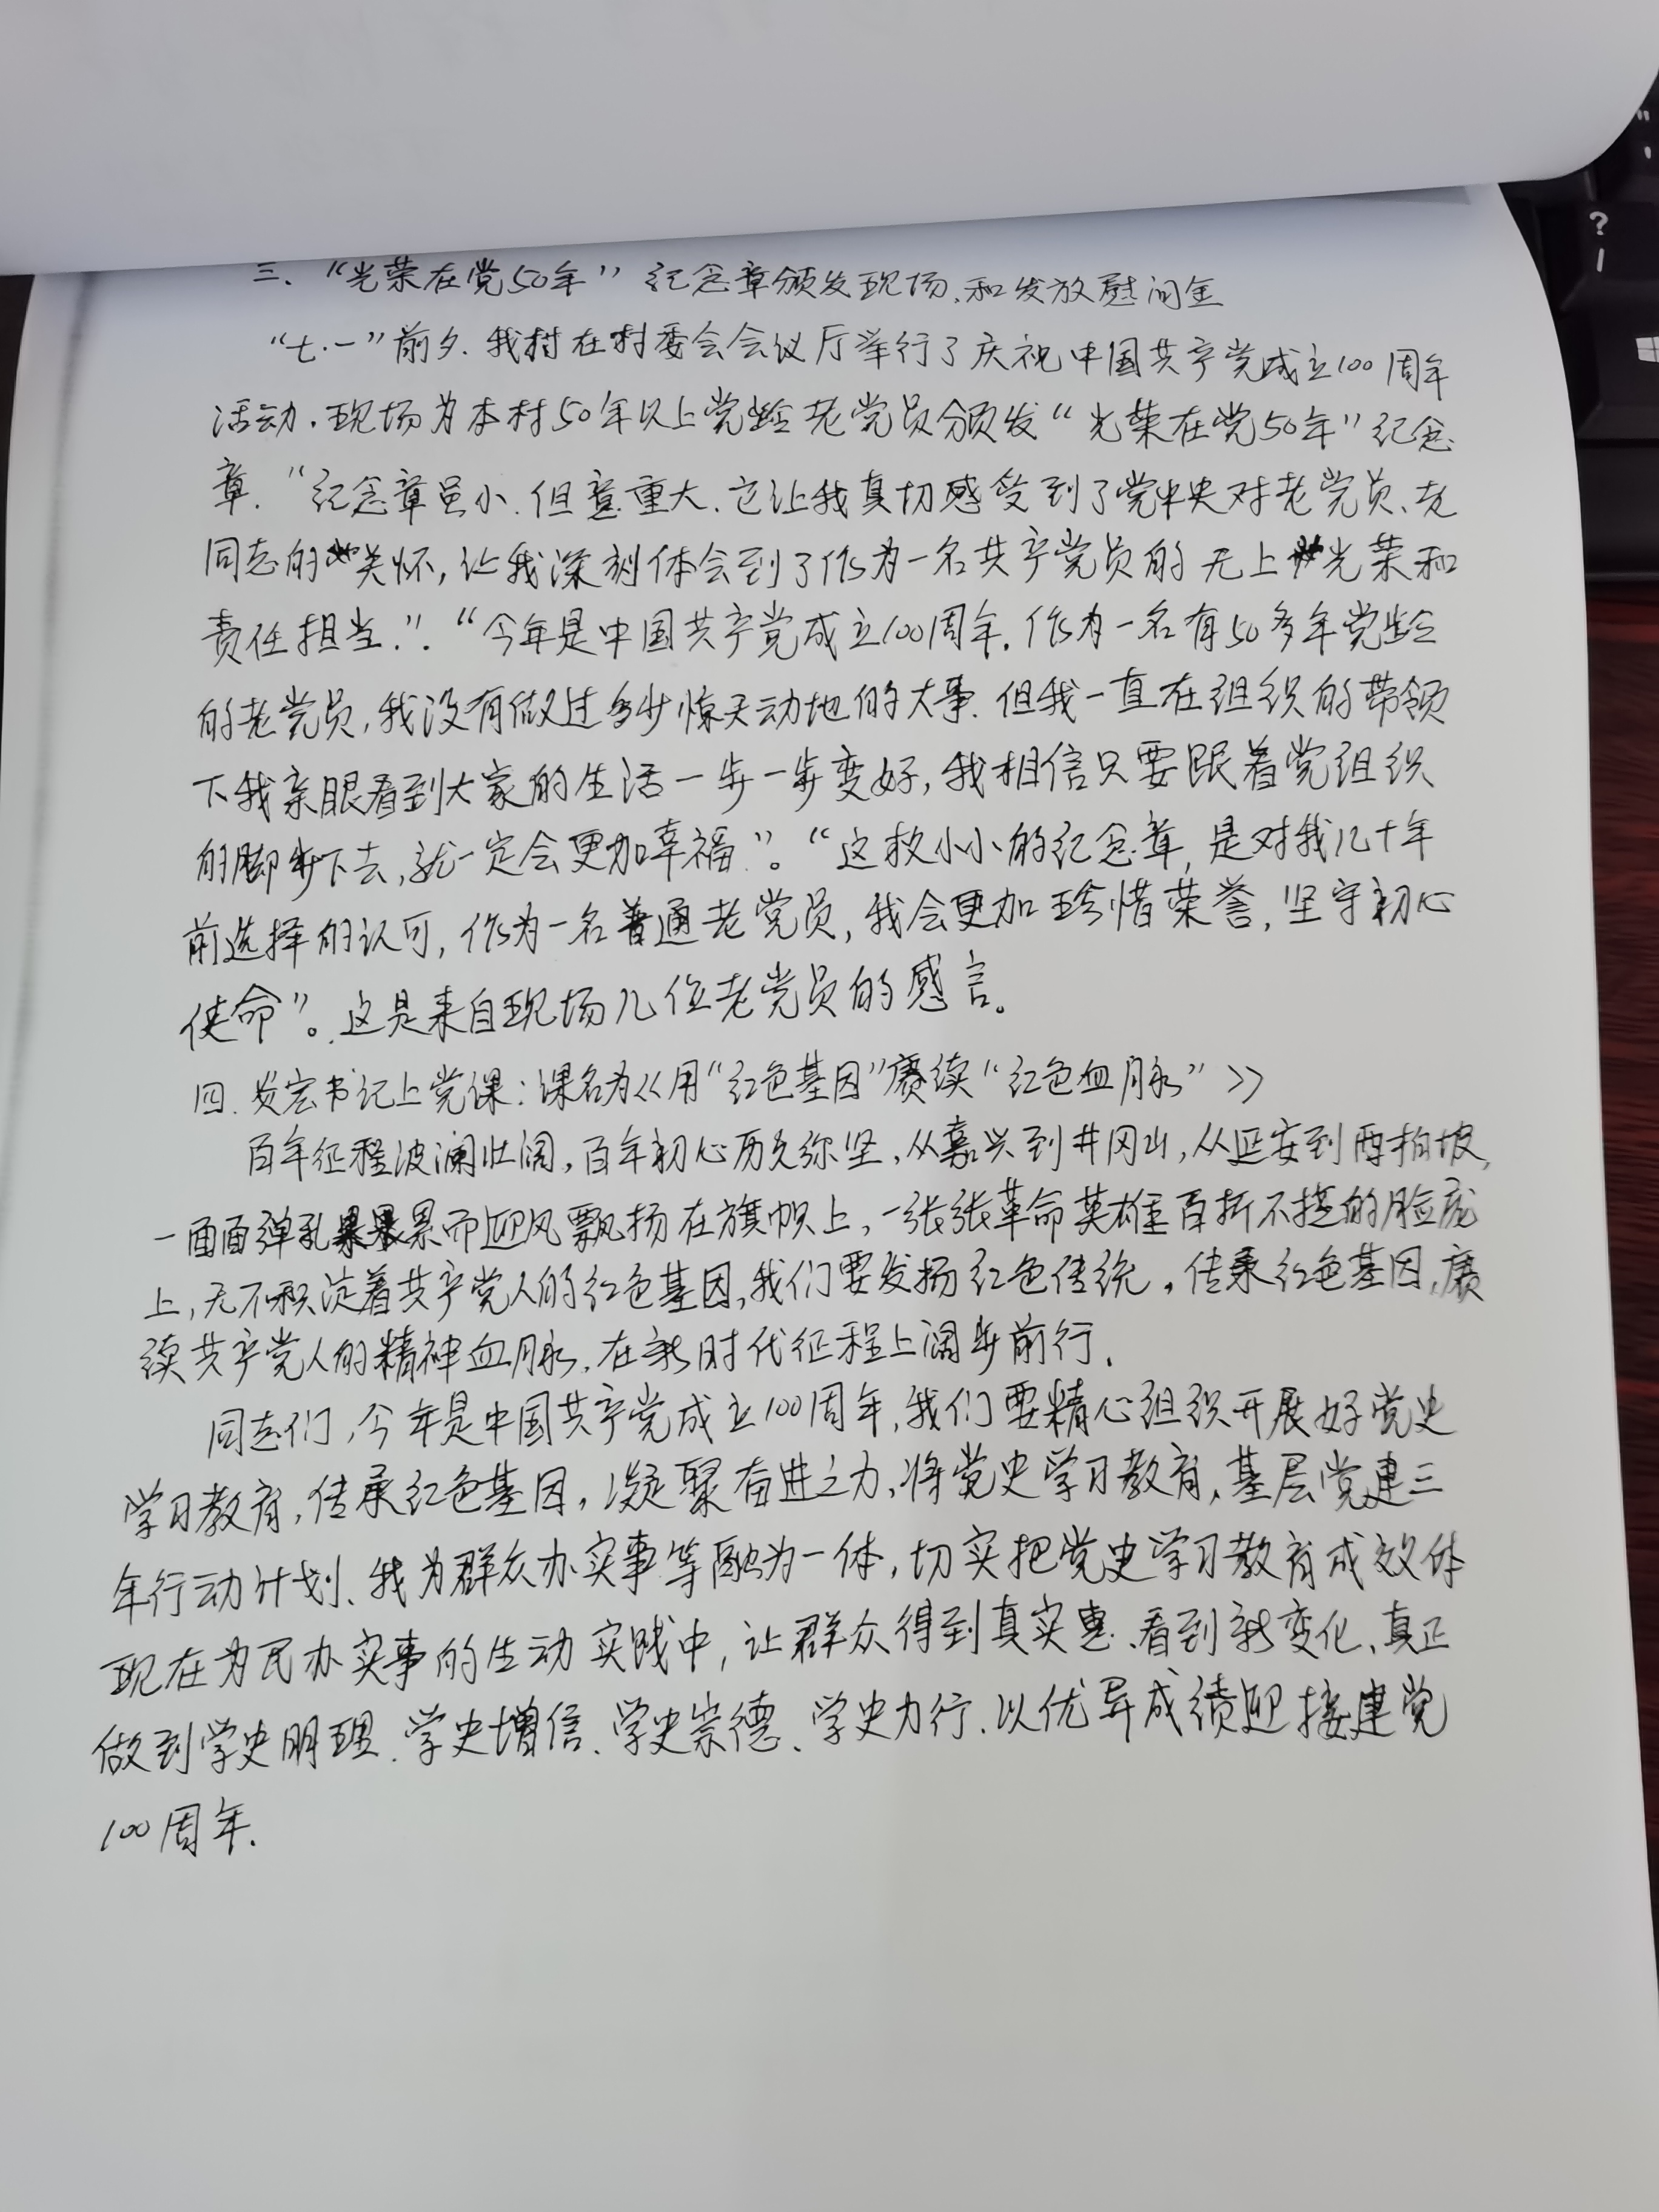 三、“光荣在党50年”纪念章颁发现场、和发放慰问金
“七·一”前夕、我村在村委会会议厅举行了庆祝中国共产党成立100周年
活动.现场为本村50年以上党龄老党员颁发“光荣在党50年”纪念
章.“纪念章虽小.但意重大.它让我真切感受到了党中央对老党员、老
同志的关怀,让我深刻体会到了作为一名共产党员的无上光荣和
责任担当.”.“今年是中国共产党成立100周年.作为一名有50多年党龄
的老党员,我没有做过多少惊天动地的大事.但我一直在组织的带领
下我亲眼看到大家的生活一步一步变好,我相信只要跟着党组织
的脚步下去,就一定会更加幸福.”。“这枚小小的纪念章,是对我几十年
前选择的认可,作为一名普通老党员,我会更加珍惜荣誉,坚守初心
使命”。这是来自现场几位老党员的感言。
四.发宏书记上党课:课名为<<用“红色基因”赓续“红色血脉”>>
百年征程波澜壮阔,百年初心历久弥坚,从嘉兴到井冈山,从延安到西柏坡,
一面面弹孔累累而迎风飘扬在旗帜上,一张张革命英雄百折不挠的脸庞
上,无不积淀着共产党人的红色基因,我们要发扬红色传统,传承红色基因,赓
续共产党人的精神血脉.在新时代征程上阔步前行.
同志们,今年是中国共产党成立100周年,我们要精心组织开展好党史
学习教育,传承红色基因,凝聚奋进之力,将党史学习教育、基层党建三
年行动计划、我为群众办实事等融为一体,切实把党史学习教育成效体
现在为民办实事的生动实践中,让群众得到真实惠、看到新变化、真正
做到学史明理、学史增信、学史崇德、学史力行.以优异成绩迎接建党
100周年.
?